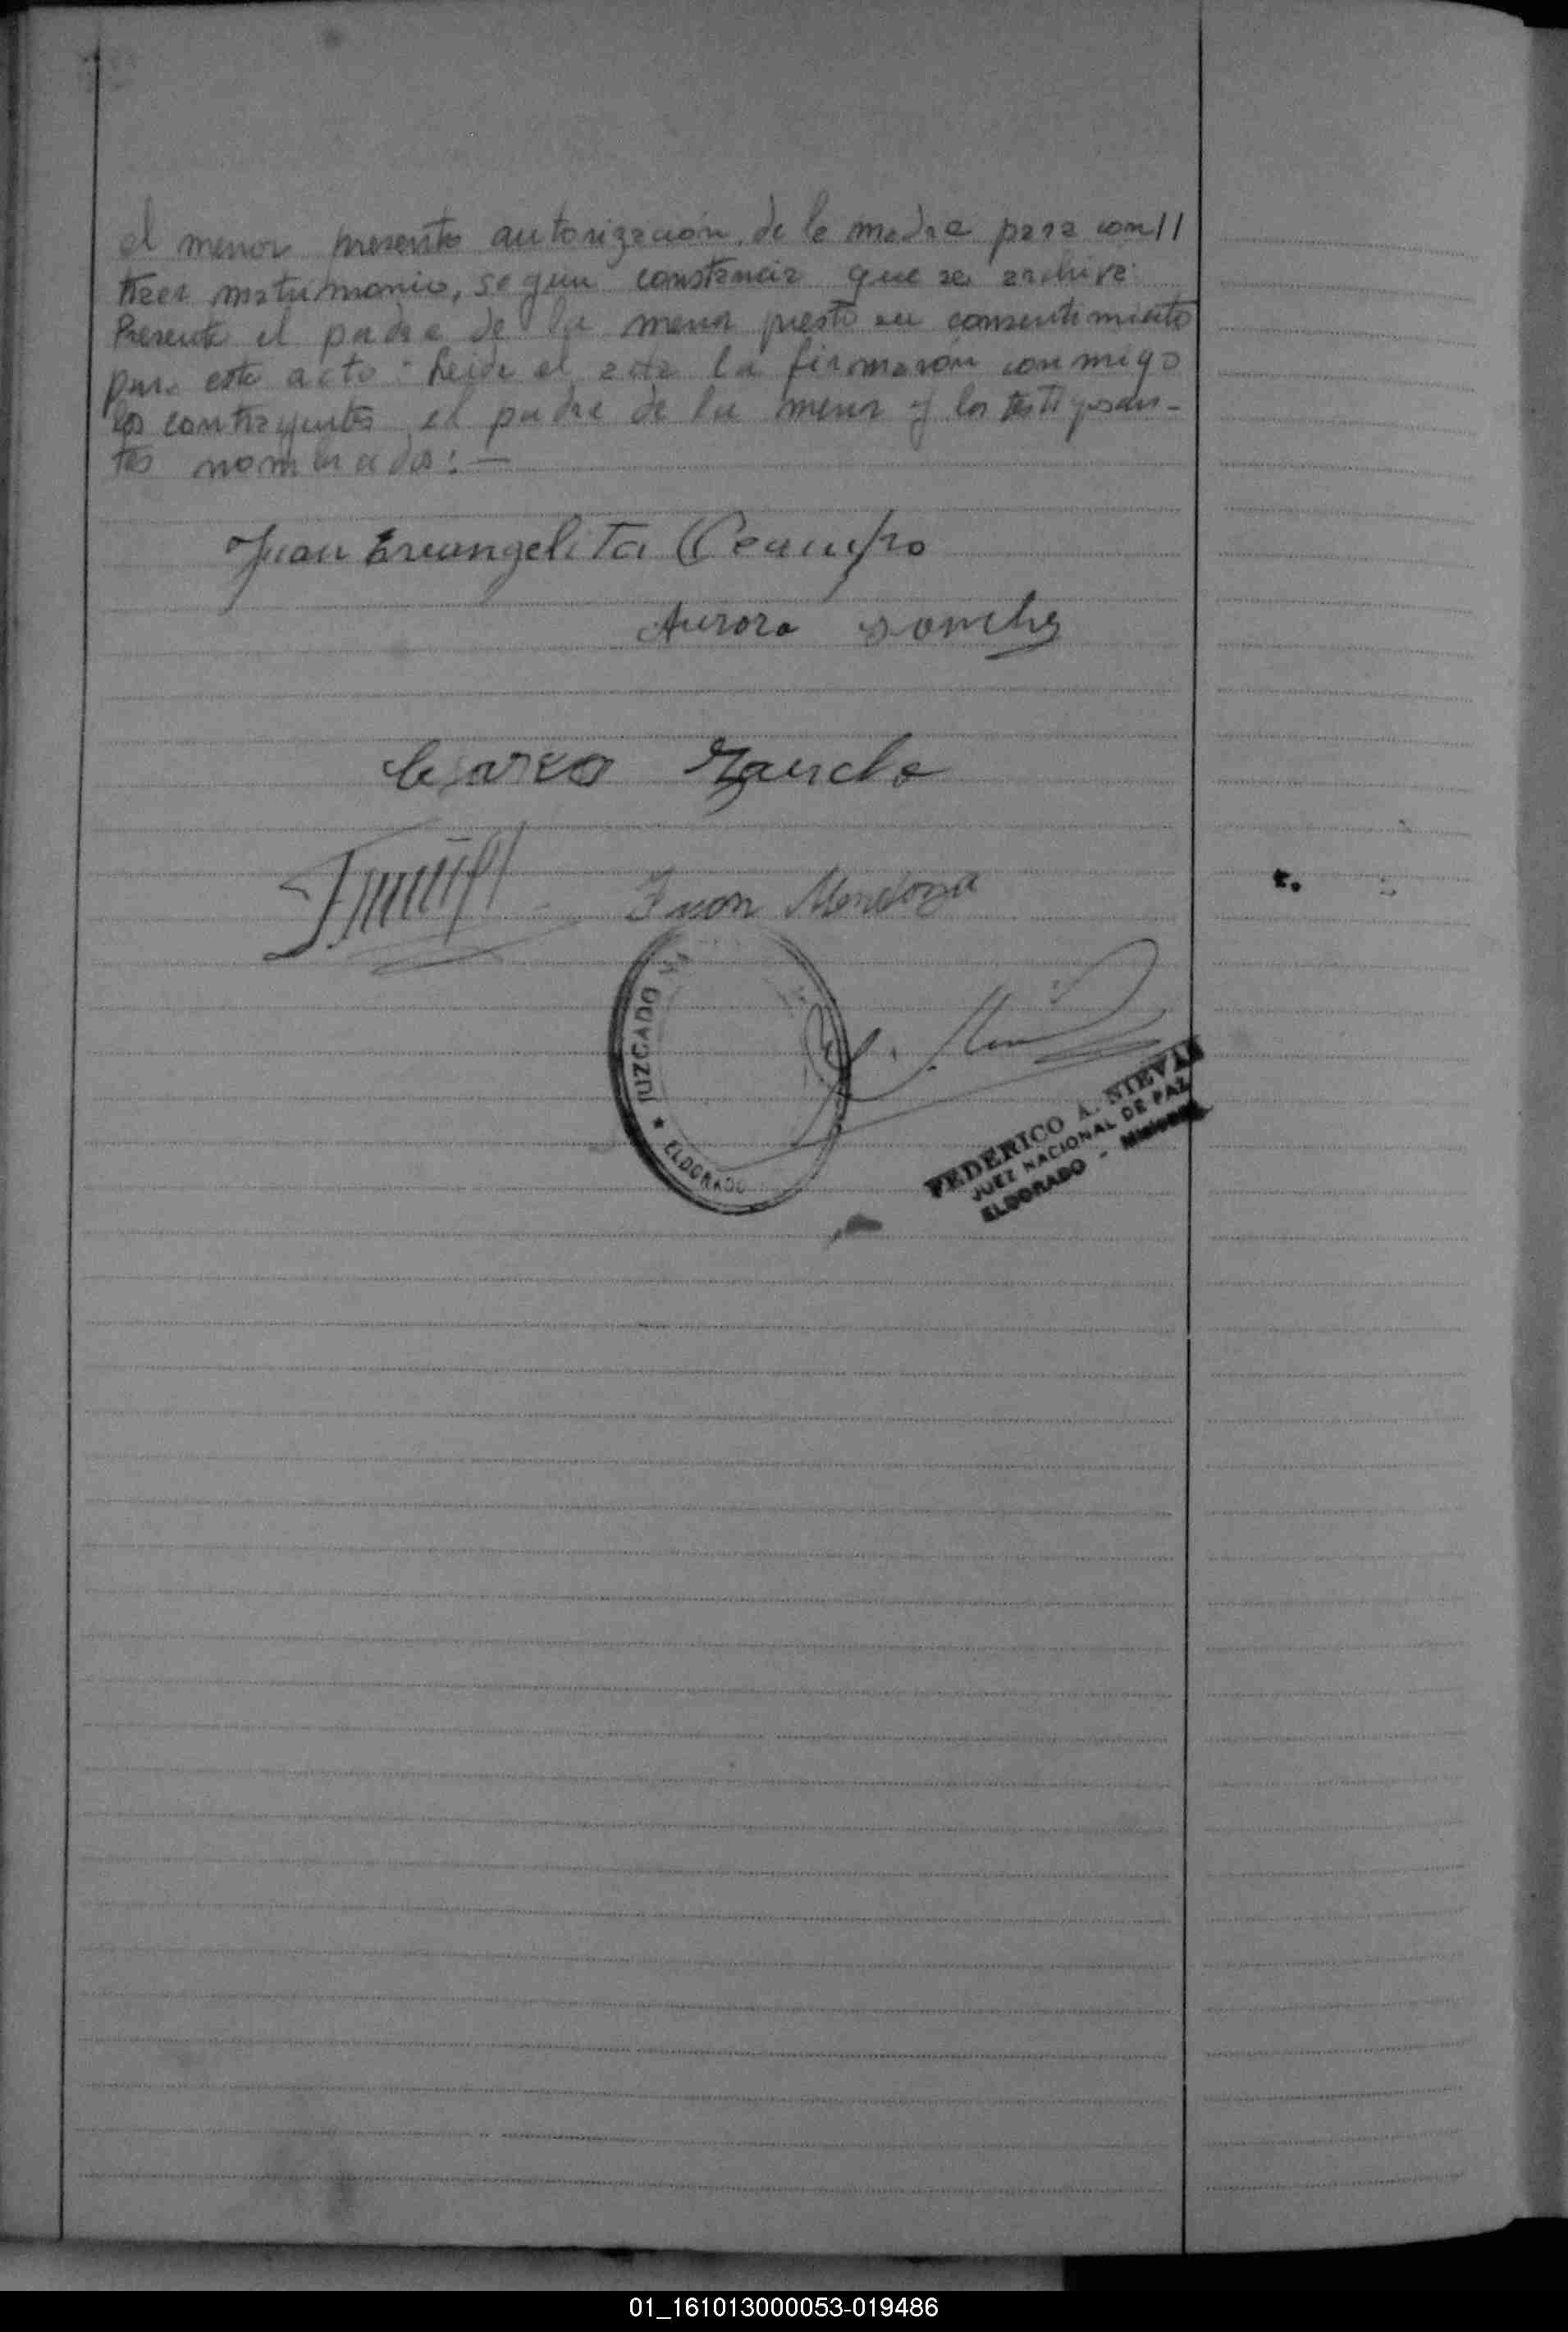 el menor presento autorización de la madre para con//
traer matrimonio, segun constancia que se archiva:
Presente el padre de la menor prestó su consentimiento
para este acto: Leida el acta la firmaron conmigo
los contrayentes, el padre de la menor y los testigos an-
tes nombrados: —
Juan Evangelista Ocampo
Aurora
Juan Mendoza
JUZGADO
★ ELDORADO
FEDERICO A. NIEVAS
JUEZ NACIONAL DE PAZ
ELDORADO - Misiones
01_161013000053-019486